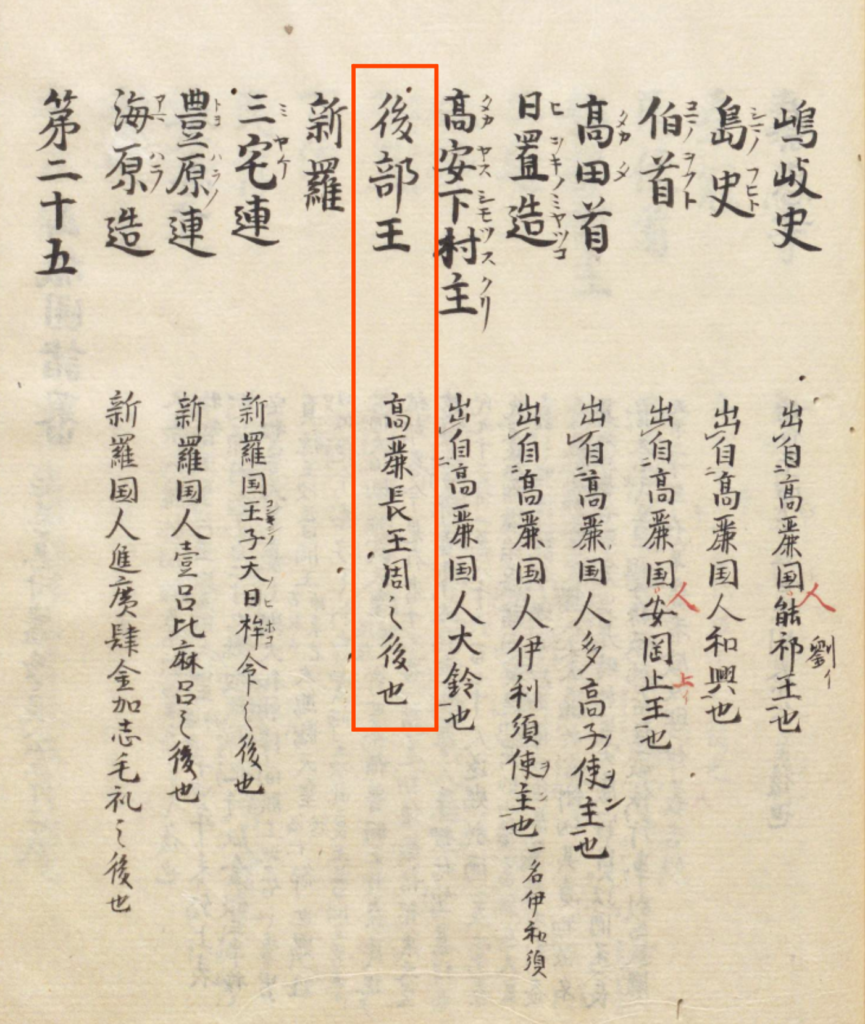 嶋岐史 出自高麗国能祁王也
人 劉イ
島史 出自高麗国人和興也
シマノ フヒト
伯首 出自高麗国安岡止王也
人 上イ
高田首 出自高麗国人多高子使主也
タカ タ
日置造 出自高麗国人伊利須使主也 一名伊和須
高安下村主 出自高麗国人大鈴也
タカ ヤス シモツス クリ
後部王 高麗長王周之後也
新羅
三宅連 新羅国王子天日桙命之後也
ミ ヤケ
豊原連 新羅国人壹呂比麻呂之後也
トヨ ハラノ
海原造 新羅国人進廣肆金加志毛礼之後也
アマ ハラノ
第二十五